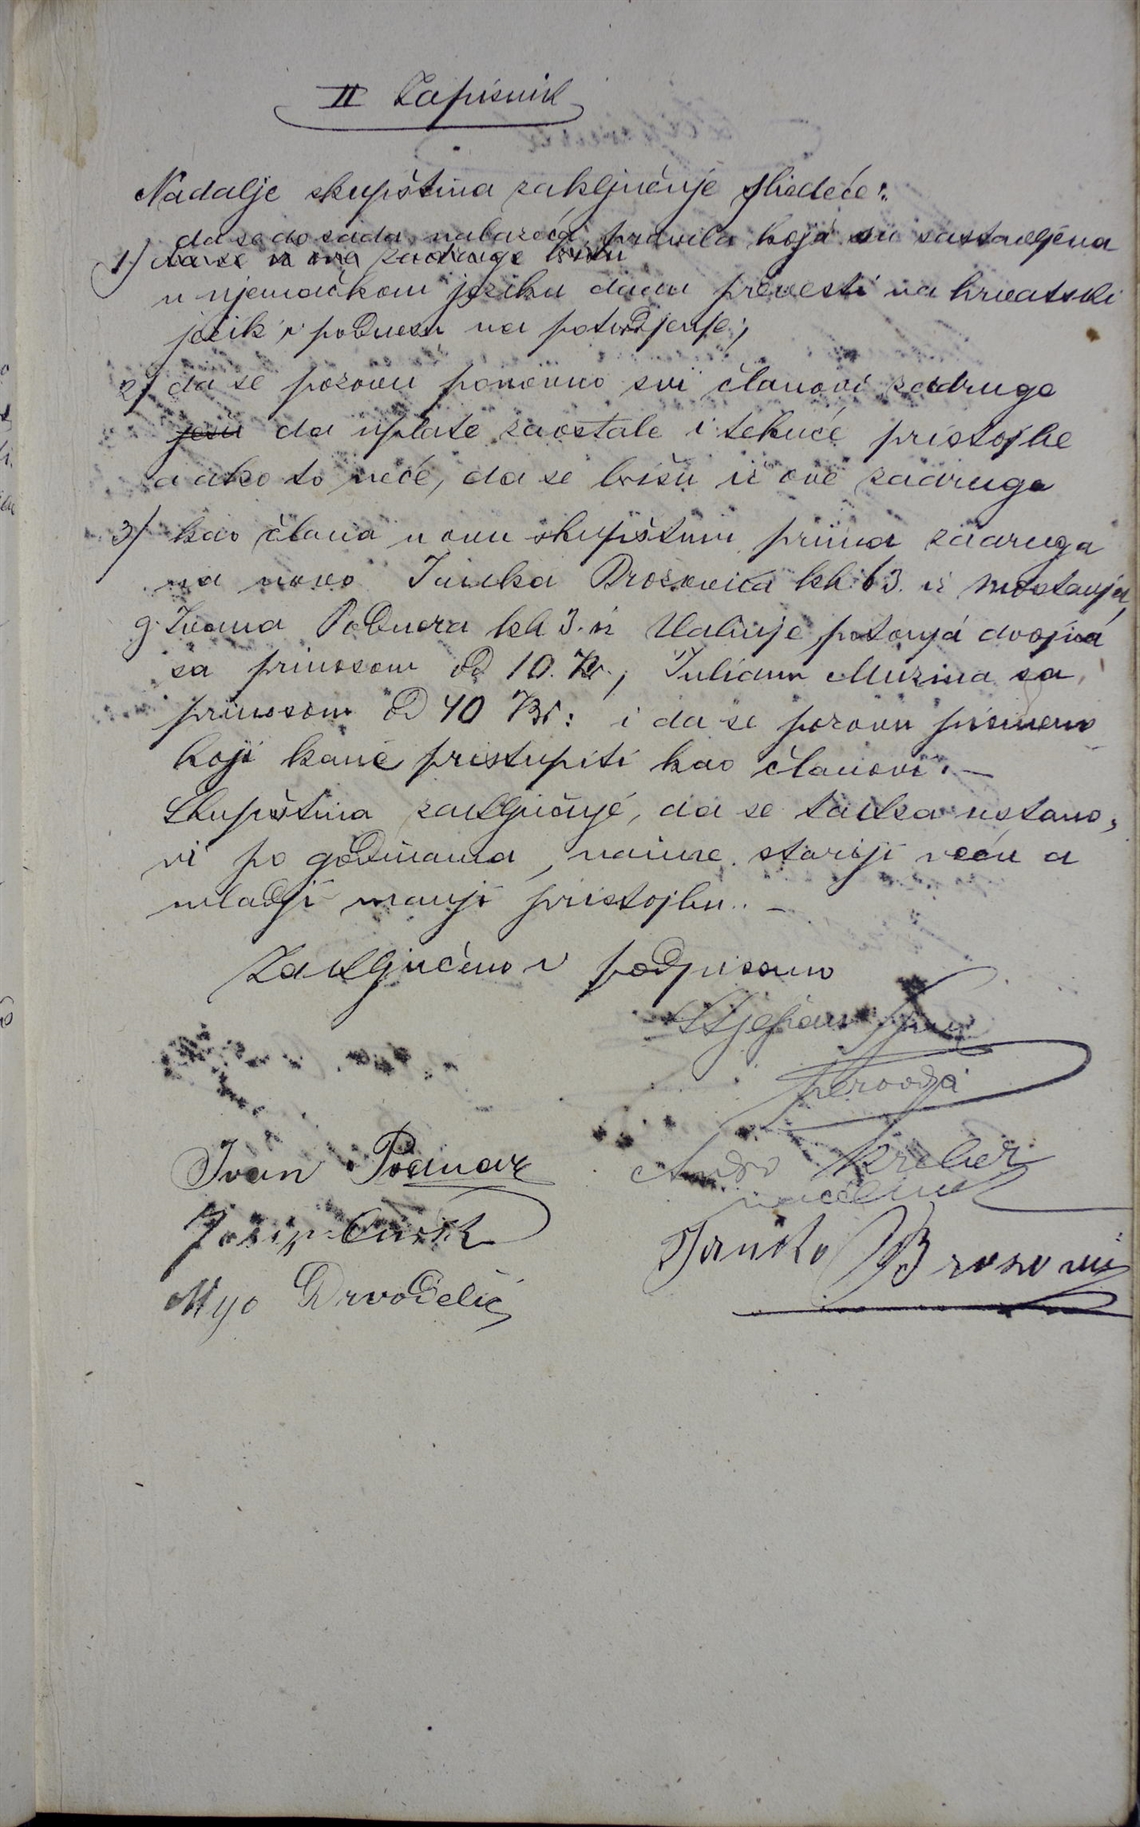 II Zapisnik
Nadalje skupština zaključuje sliedeće:
da se do sada nalazeća pravila koja su sastavljena
1/ da se iz ove zadruge brišu
u njemačkom jeziku dadu prevesti na hrvatski
jezik i podnesu na potvrdjenje;
2/ da se pozovu ponovno svi članovi zadruge
jesu da uplate zaostale i tekuće pristojbe
a ako to neće, da se brišu iz ove zadruge
3/ kao člana u ovu skupštinu prima zadruga
na novo Janka Brozovića kh 63. iz Mostanja,
g. Ivana Podnera kh 3. iz dvojica
sa prinosom od 10. Kr., Julium Muzina sa
prinosom od 40 Kr: i da se pozovu pismeno
koji kane pristupiti kao članovi. —
Skupština zaključuje, da se taksa ustano-
vi po godinama, naime stariji veću a
mladji manji pristojbu. —
Zaključeno i podpisano
Stjepan
perovodja
Ivan Podnar
Andro
načelnik
Josip
Janko Brozović
Mijo Drvodelić